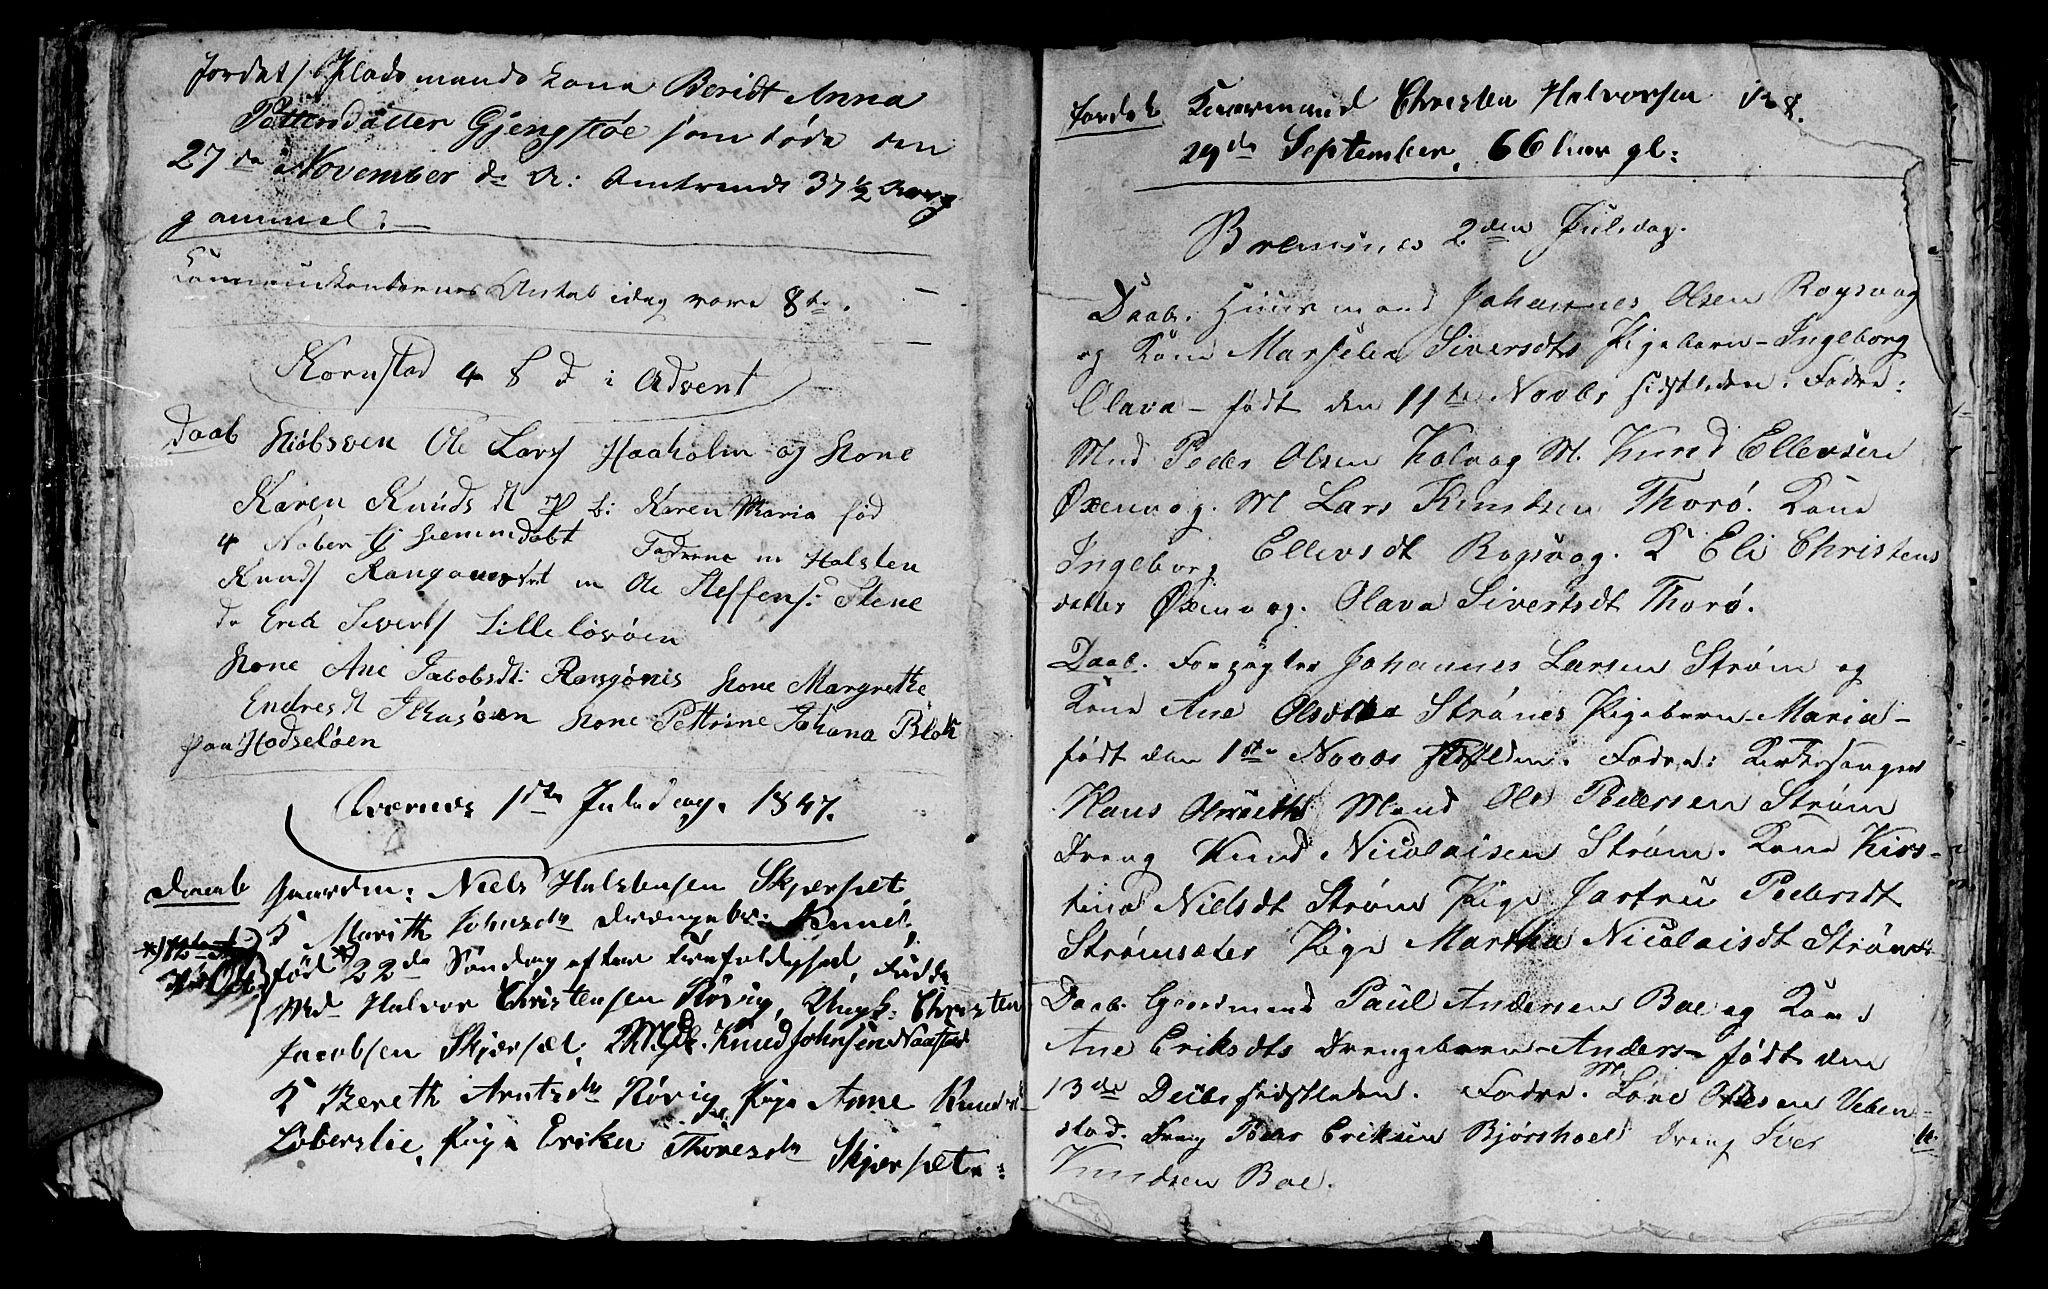 Jordet / Pladsmands Kone Beridt Anna
Pettersdatter Gjengstøe som døde den
27de November d: A: omtrendt 37 1/2 Aar
gammel: —
Communikanternes Antal idag vare 8te. —
Kornstad 4 S d i Advent
Daab Huusven Ole Lars Haaholm og Kone
Karen Knuds d P b: Karen Maria fød
4 Nober hjemmdøbt Faderne m Halsten
Knuds m Ole Steffens: Stene
do Erik Siverts Lilleløvøen
Kone Ane Jacobsdt: Rangønis Kone Margrethe
Endresd Kone Pettrine Johana Blok
paa Hodseløen
Qværnes 1ste Juledag. 1847.
Daab Gaardm: Niels Halstensen Skjærsæt,
K Marith Johnsdr Drængebr: Knud,
fød 22de Søndag efter Trefoldighed, Fadde
Md Halvor Christensen Røvig, Ungk: Christen
Jacobsen Skjærsæt, Knud Johnsen Naastad
K Bereth Arntsdr Røvig, Pige Anne Knudsd
Loberslie, Pige Erika Thoresdr Skjærsæt:
Jordet Kaarmand Christen Halvorsen
29de September, 66 Aar gl:
128.
Bremsnes 2den Juledag.
Daab. Huusmand Johannes Olsen Rogsvog
og Kone Marselia Siversdts Pigebarn – Ingeborg
Olava – født den 11te Novbr sidstleden. Fadre:
Mnd Peder Olsen Kalvog M. Knud Ellevsen
Øxenvog. M Lars Knudsen Thorø. Kone
Ingeborg Ellevsdt Rogsvog. K Eli Christens
datter Øxenvog. Olava Sivertsdt Thorø.
Daab. Johannes Larsen Strøm og
Kone Ane Olsdtr Strømes Pigebarn – Maria –
født den 1ste Novbr sidstleden. Fadre: Kirkesanger
Hans Mand Ole Pedersen Strøm
Dreng Knud Nicolaisen Strøm. Kone Kirs-
tina Nielsdt Strøm Pige Jartru Pedersdt
Strømsæter Pige Martha Nicolaisdt Strøm
Daab. Gaardmand Paul Andersen Boe og Kone
Ane Eriksdts Drengebarn – Anders – født den
13de Decbr sidstleden. Fadre. M Lare Olsen Veben-
stad. Dreng Peder Eriksen Bjørshoel Dreng Iver
Knudsen Boe.